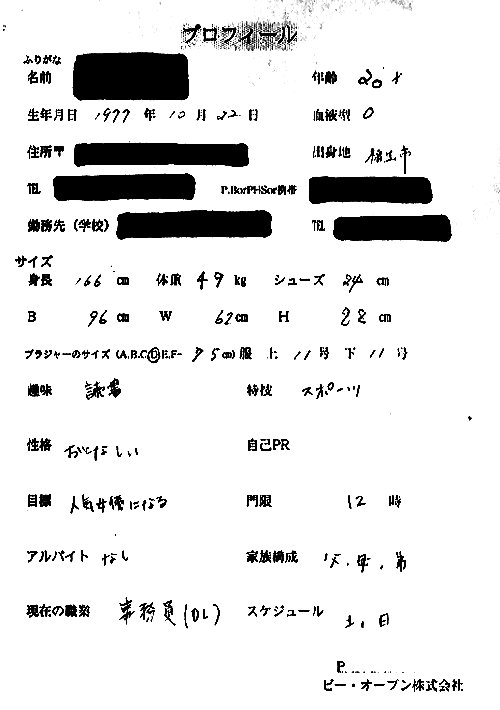 プロフィール
ふりがな
名前 年齢 20才
生年月日 1977年10月22日 血液型 O
住所〒 出身地 市
TEL P.BorPHSor携帯
勤務先（学校） TEL
サイズ
身長 166 cm 体重 49 kg シューズ 24 cm
B 96 cm W 62 cm H 88 cm
ブラジャーのサイズ（A,B,C,D,E,F- 75 cm）服 上 11号 下 11号
趣味 読書 特技 スポーツ
性格 おとなしい 自己PR
目標 人気女優になる 門限 12 時
アルバイト なし 家族構成 父．母．弟
現在の職業 事務員(OL) スケジュール 土．日
P
ビー・オープン株式会社